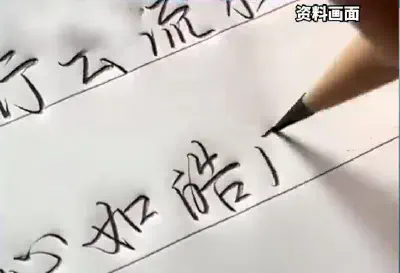 资料画面
行云流水
心如皓